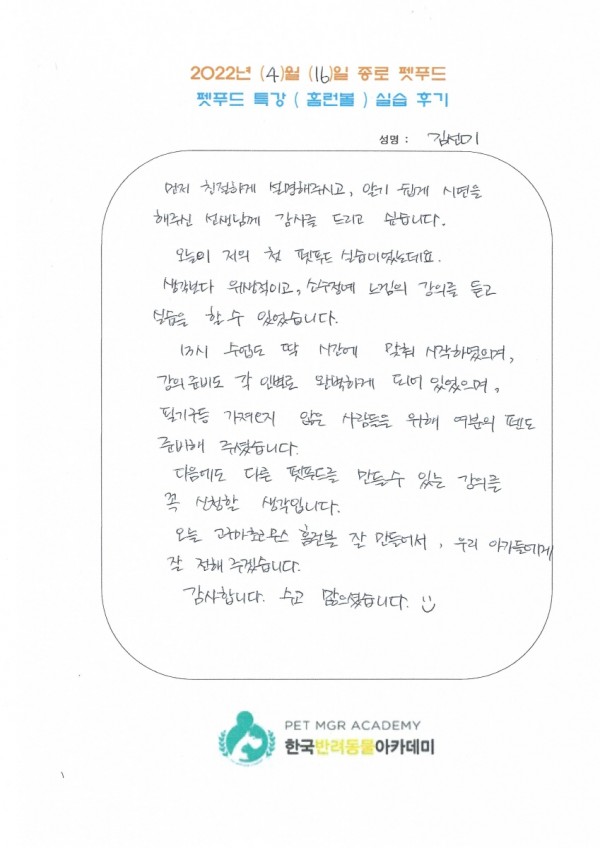 2022년 (4)월 (16)일 종로 펫푸드
펫푸드 특강 ( 홈런볼 ) 실습 후기
성명 : 김선미
먼저 친절하게 설명해주시고, 알기 쉽게 시연을
해주신 선생님께 감사를 드리고 싶습니다.
오늘이 저의 첫 펫푸드 실습이었는데요.
생각보다 위생적이고, 소수정예 느낌의 강의를 듣고
실습을 할 수 있었습니다.
13시 수업도 딱 시간에 맞춰 시작하였으며,
강의 준비도 각 인별로 완벽하게 되어 있었으며,
필기구등 가져오지 않은 사람들을 위해 여분의 펜도
준비해 주셨습니다.
다음에도 다른 펫푸드를 만들수 있는 강의를
꼭 신청할 생각입니다.
오늘 고구마초코무스 홈런볼 잘 만들어서, 우리 아가들에게
잘 전해 주겠습니다.
감사합니다. 수고 많으셨습니다.
PET MGR ACADEMY
한국반려동물아카데미